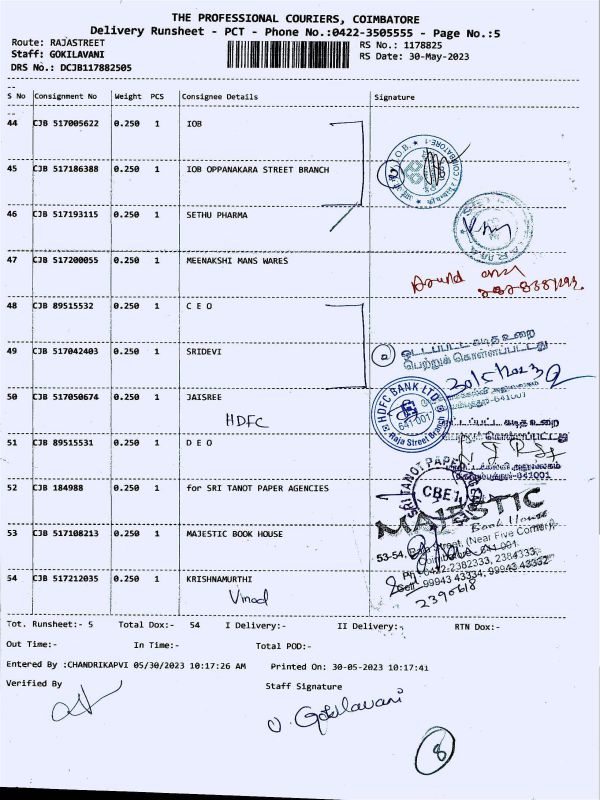 THE PROFESSIONAL COURIERS, COIMBATORE
Delivery Runsheet - PCT - Phone No.:0422-3505555 - Page No.:5
Route: RAJASTREET
Staff: GOKILAVANI
DRS No.: DCJB117882505
RS No.: 1178825
RS Date: 30-May-2023
S No Consignment No Weight PCS Consignee Details Signature
44 CJB 517005622 0.250 1 IOB
45 CJB 517186388 0.250 1 IOB OPPANAKARA STREET BRANCH
46 CJB 517193115 0.250 1 SETHU PHARMA
47 CJB 517200055 0.250 1 MEENAKSHI MANS WARES
48 CJB 89515532 0.250 1 C E O
49 CJB 517042403 0.250 1 SRIDEVI
ஒட்டப்பட்ட கடித உறை
பெற்றுக் கொள்ளப்பட்டது
50 CJB 517050674 0.250 1 JAISREE
HDFC
HDFC BANK LTD.
641 001
Raja Street Branch
கடித உறை
51 CJB 89515531 0.250 1 D E O
52 CJB 184988 0.250 1 for SRI TANOT PAPER AGENCIES
SRI TANOT PAPER
CBE 1
53 CJB 517108213 0.250 1 MAJESTIC BOOK HOUSE
MAJESTIC
Book House
53-54, Raja Street, (Near Five Corner),
Coimbatore - 641 001.
Ph : 0422-2382333, 2384333,
Cell : 99943 43334, 99943 43332
2390618
54 CJB 517212035 0.250 1 KRISHNAMURTHI
Vinod
Tot. Runsheet:- 5 Total Dox:- 54 I Delivery:- II Delivery:- RTN Dox:-
Out Time:- In Time:- Total POD:-
Entered By :CHANDRIKAPVI 05/30/2023 10:17:26 AM Printed On: 30-05-2023 10:17:41
Verified By Staff Signature
Gokilavani
8